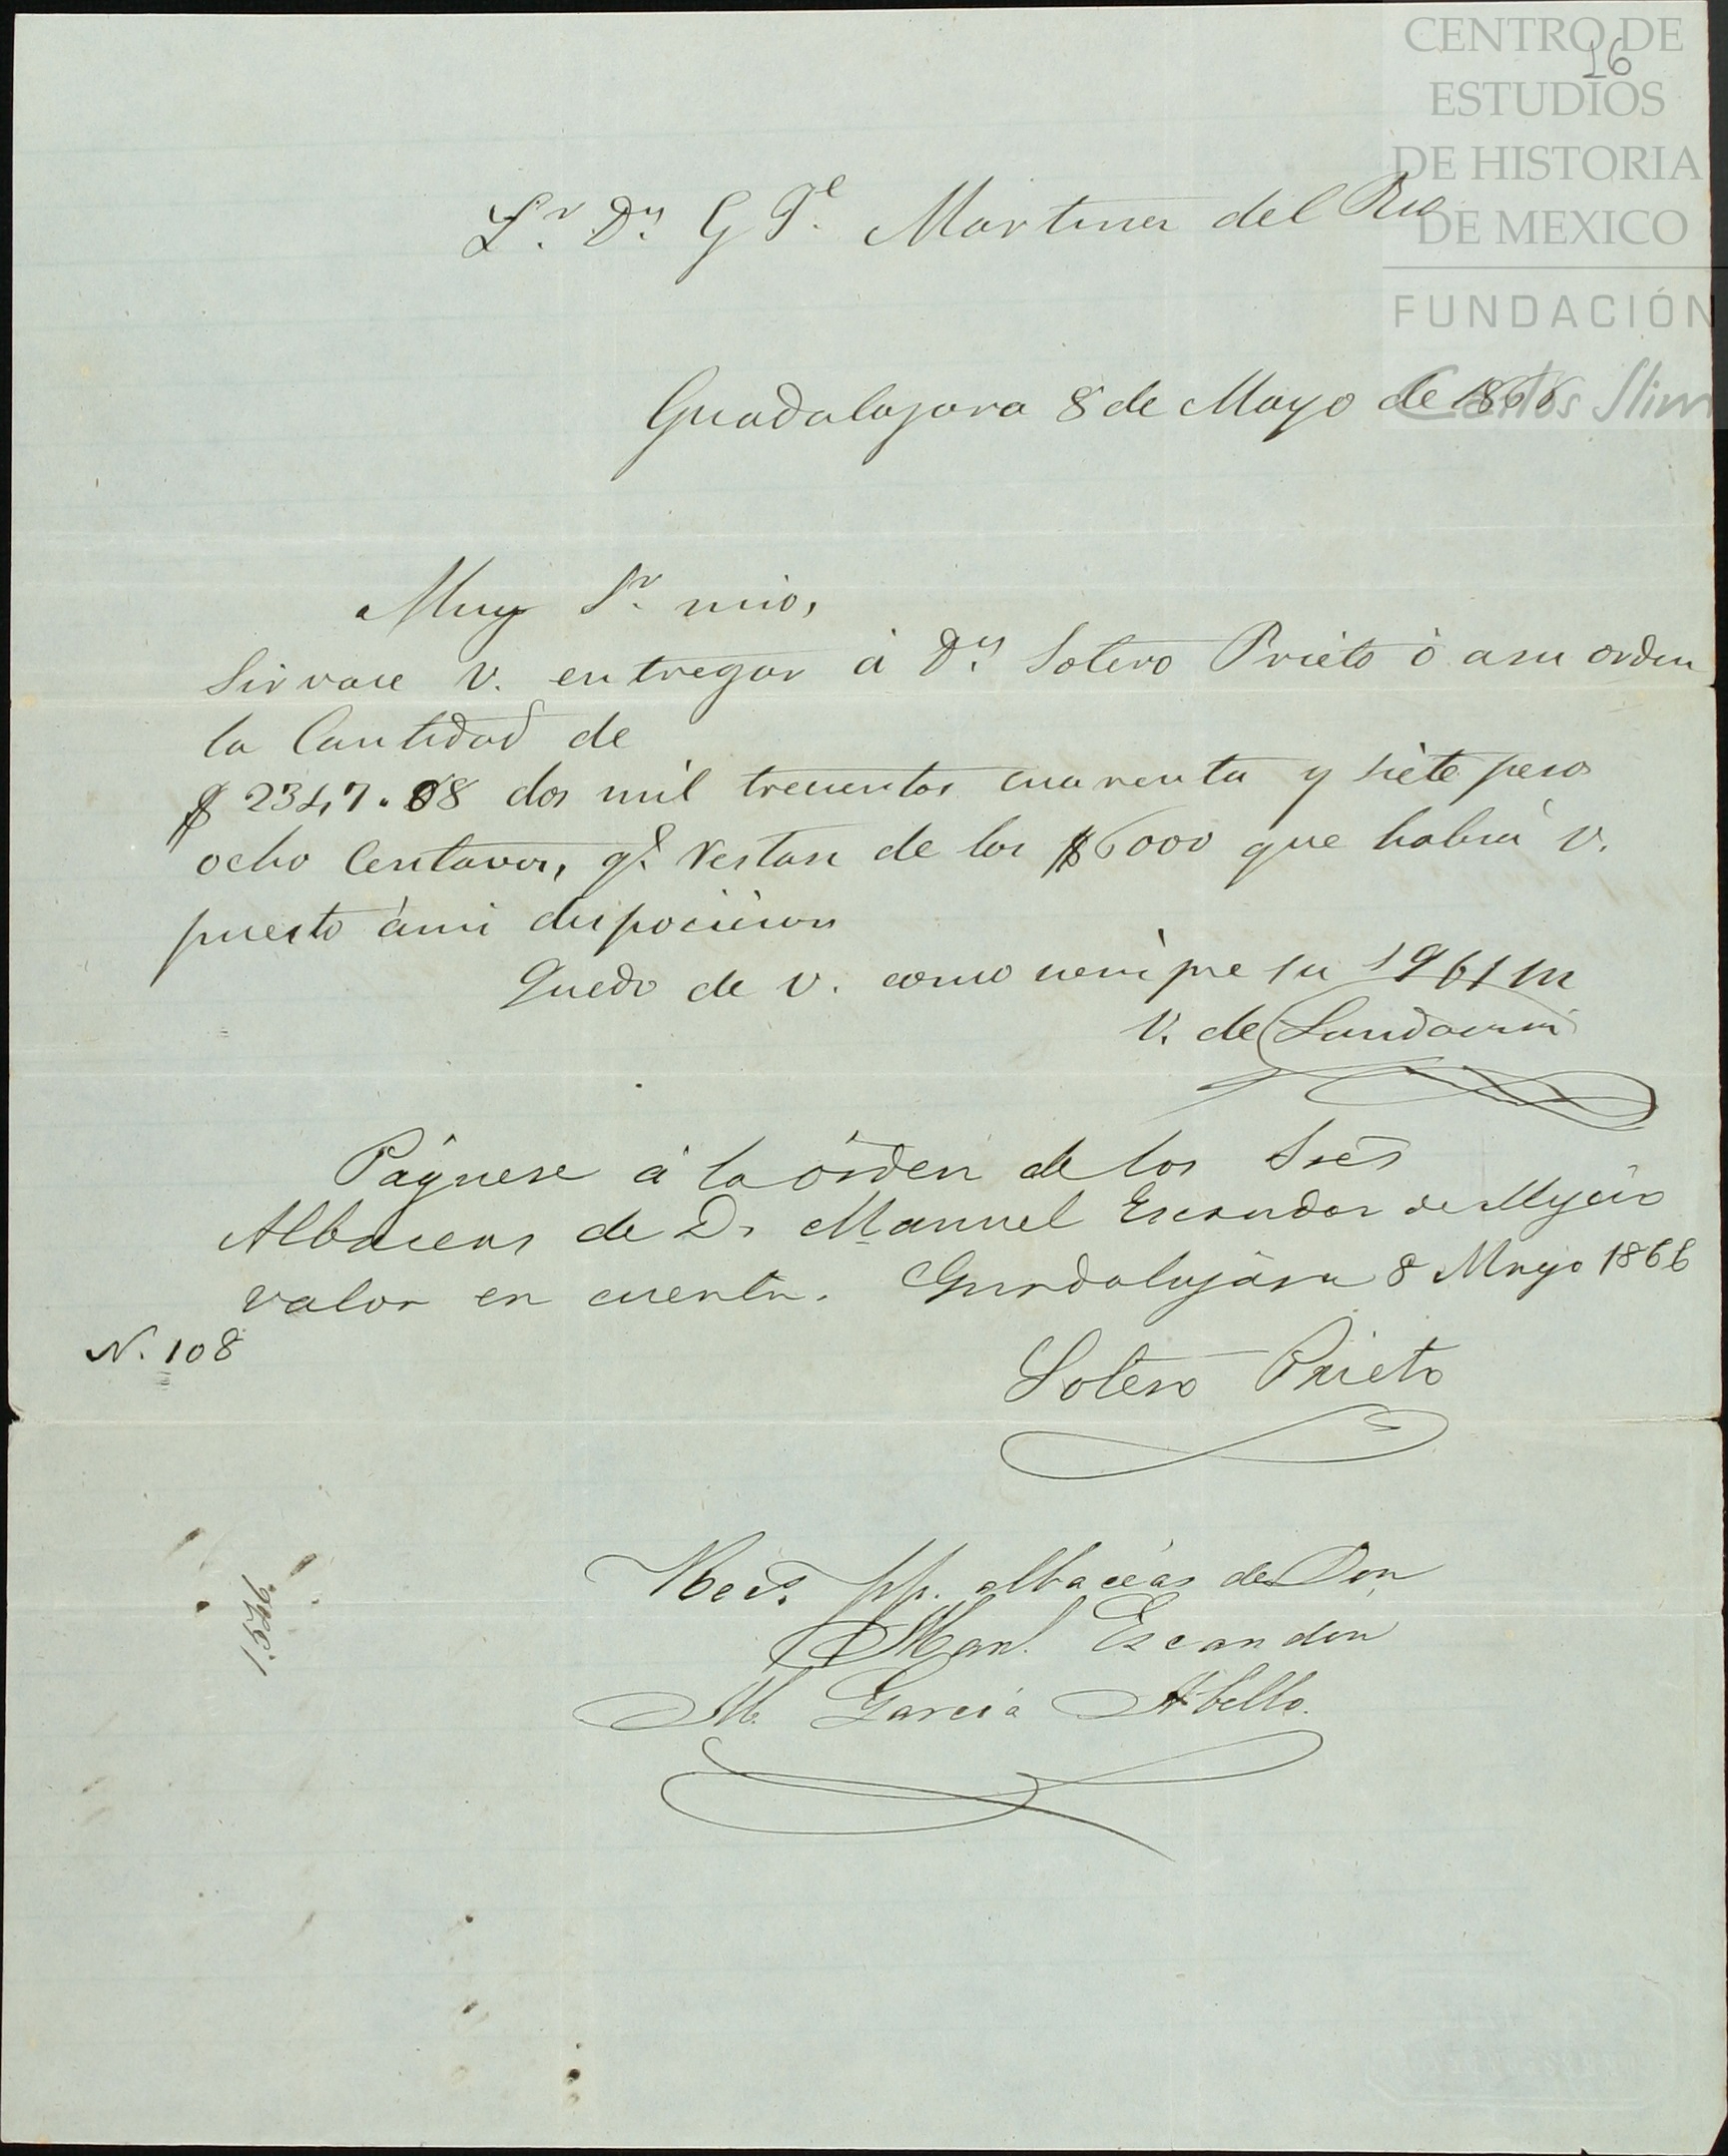 CENTRO DE
ESTUDIOS
DE HISTORIA
DE MEXICO
FUNDACIÓN
Carlos Slim
16
Sr. Dn. G Pe. Martinez del Rio
Guadalajara 8 de Mayo de 1866
Muy Sr. mio,
Sirvase V. entregar á Dn. Sotero Prieto ó a su orden
la Cantidad de
$ 2347.08 dos mil trecientos cuarenta y siete pesos
ocho Centavos, qe. restan de los $6000 que habia V.
puesto á mi disposicion
Quedo de V. como siempre su
V. de Landa
Páguese á la órden de los Sres
Albaceas de Dn Manuel Escandon de Mejico
valor en cuenta. Guadalajara 8 Mayo 1866
N. 108
Sotero Prieto
1.546.
Reci. pp. albaceas de Don
Manl. Escandón
M. Garcia Abello.